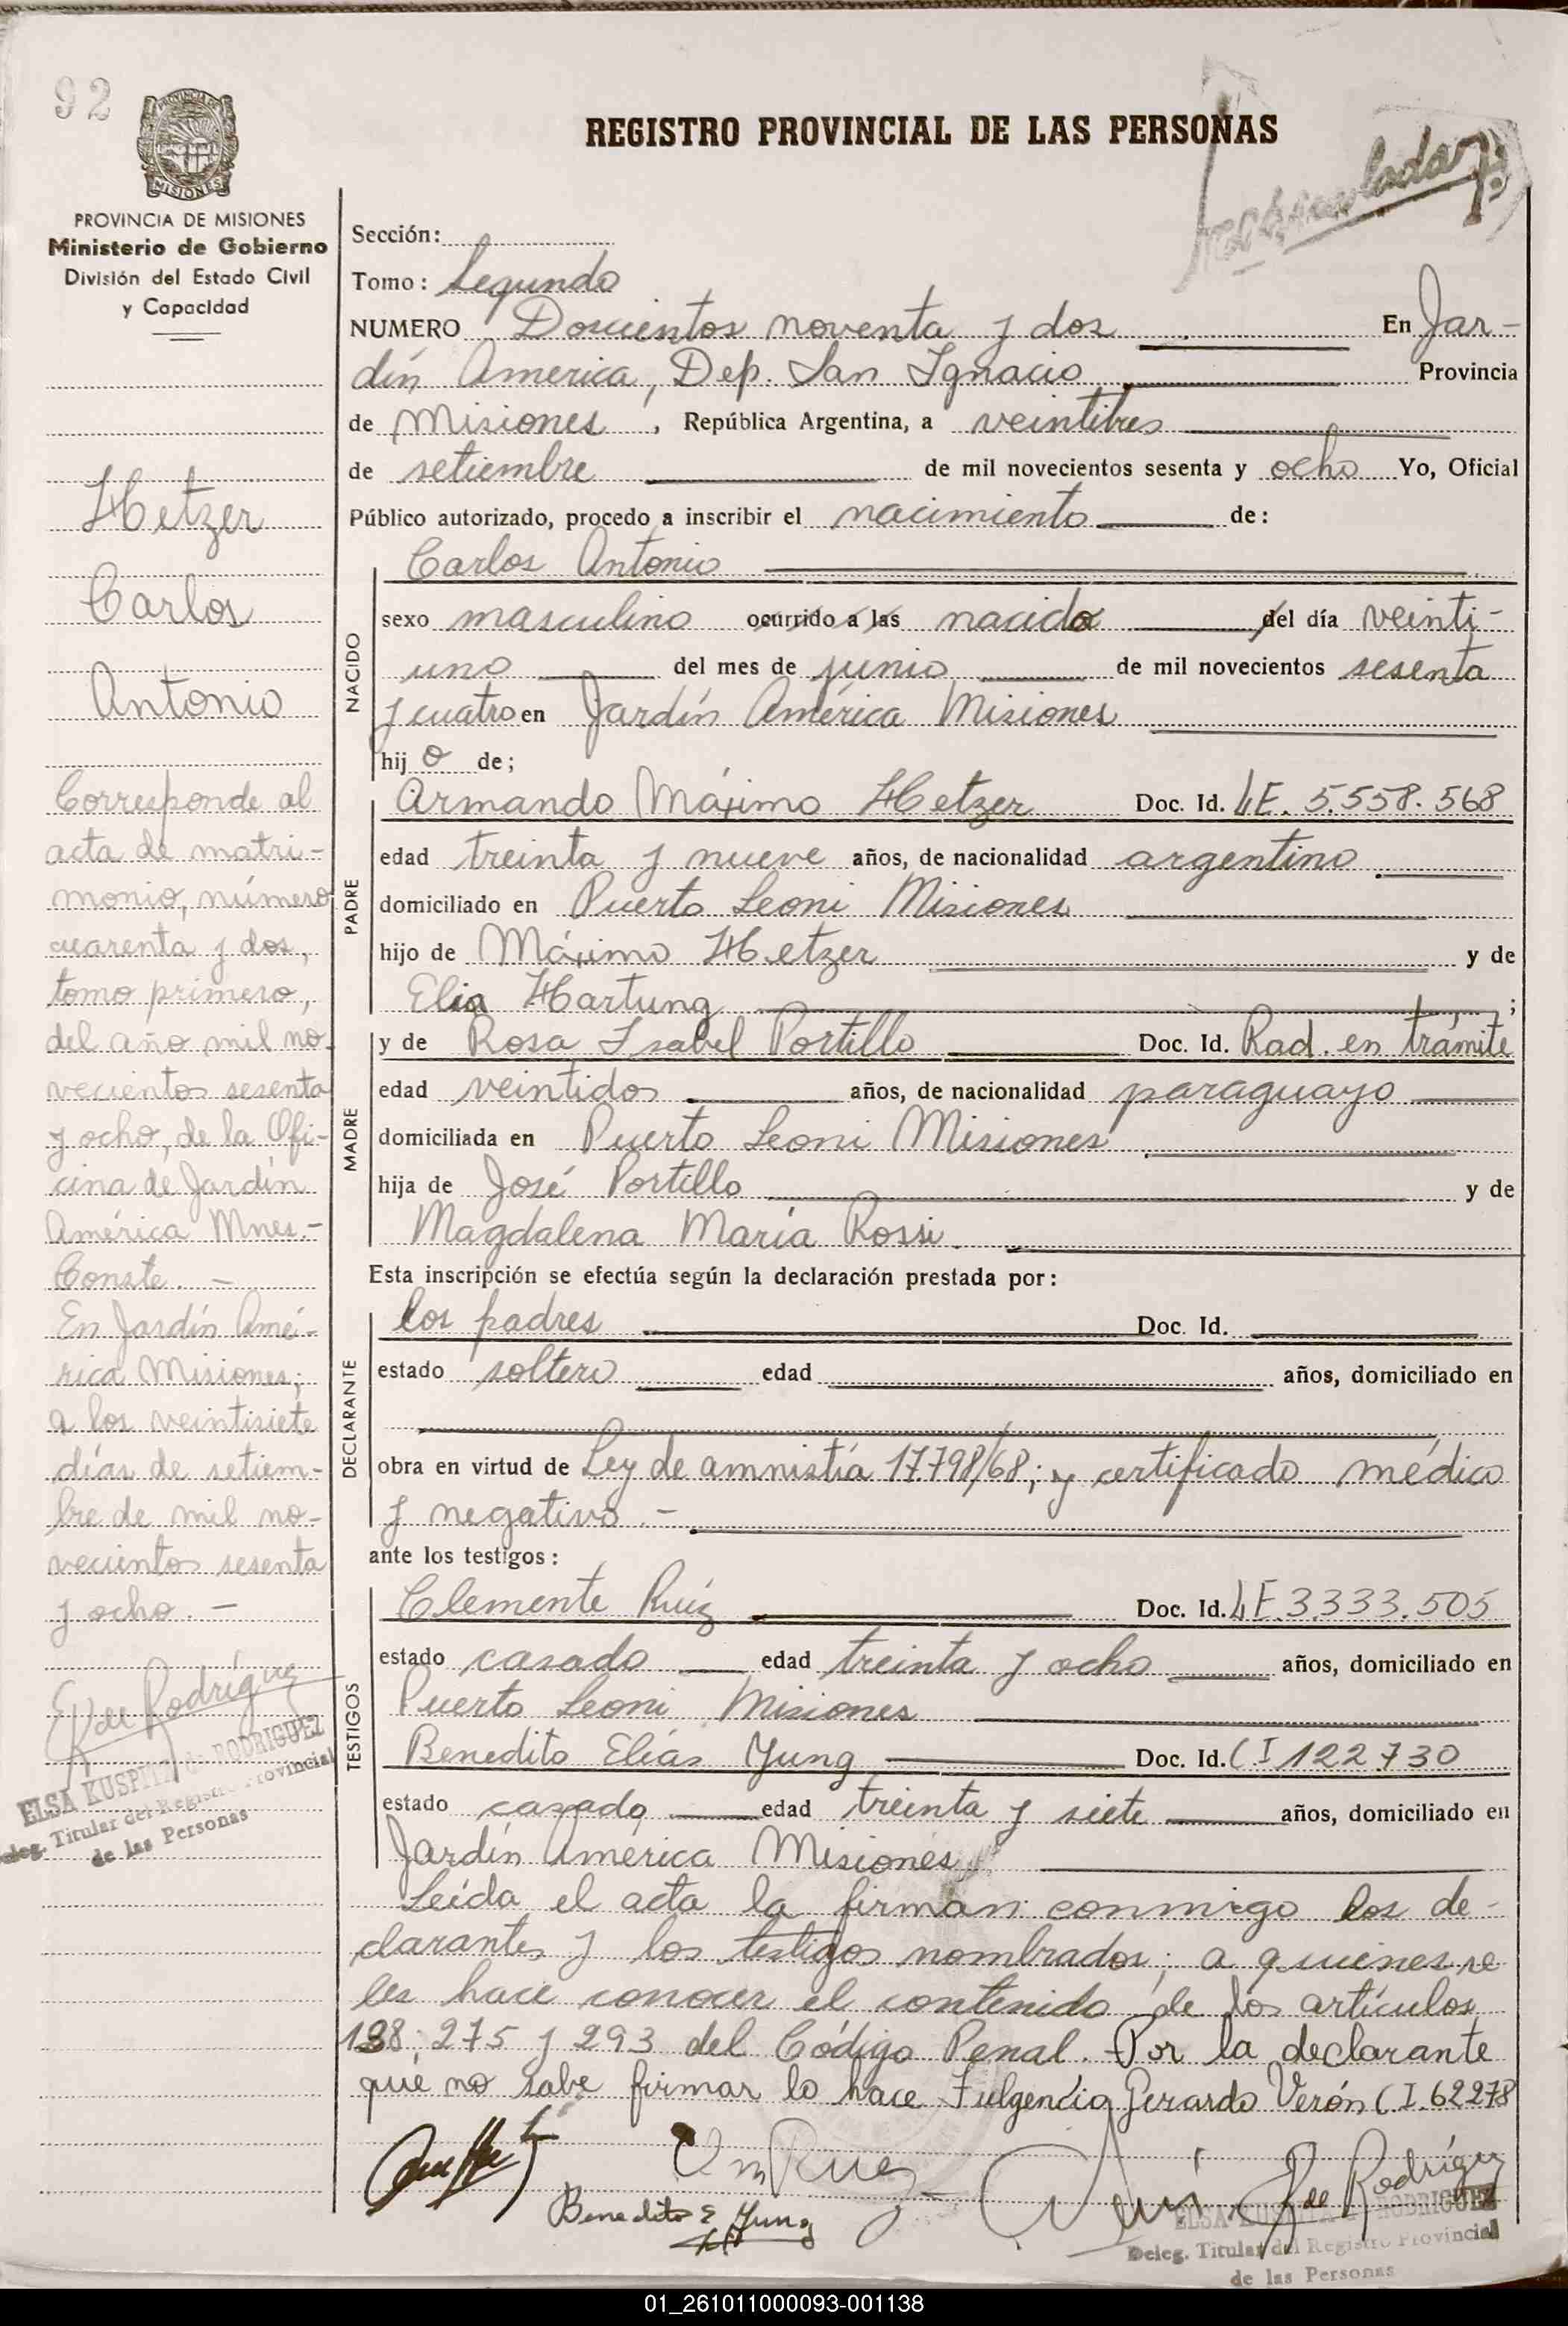 92
PROVINCIA DE MISIONES
Ministerio de Gobierno
División del Estado Civil
y Capacidad
REGISTRO PROVINCIAL DE LAS PERSONAS
Sección:
Tomo: Segundo
NUMERO Doscientos noventa y dos En Jar-
dín América, Dep. San Ignacio Provincia
de Misiones, República Argentina, a veintitres
de setiembre de mil novecientos sesenta y ocho Yo, Oficial
Público autorizado, procedo a inscribir el nacimiento de:
Carlos Antonio
NACIDO
sexo masculino ocurrido a las nacido del día veinti-
uno del mes de junio de mil novecientos sesenta
y cuatro en Jardín América Misiones
hijo de;
PADRE
Armando Máximo Hetzer Doc. Id. LE. 5.558.568
edad treinta y nueve años, de nacionalidad argentino
domiciliado en Puerto Leoni Misiones
hijo de Máximo Hetzer y de
Elia Hartung ;
MADRE
y de Rosa Isabel Portillo Doc. Id. Rad. en trámite
edad veintidos años, de nacionalidad paraguayo
domiciliada en Puerto Leoni Misiones
hija de José Portillo y de
Magdalena María Rossi.
Esta inscripción se efectúa según la declaración prestada por:
DECLARANTE
los padres Doc. Id.
estado soltero edad años, domiciliado en
obra en virtud de Ley de amnistía 17798/68; y certificado médico
y negativo.-
ante los testigos:
TESTIGOS
Clemente Ruiz Doc. Id. LE.3.333.505
estado casado edad treinta y ocho años, domiciliado en
Puerto Leoni Misiones
Benedito Elías Yung Doc. Id. CI 122.730
estado casado edad treinta y siete años, domiciliado en
Jardín América Misiones
Leída el acta la firman conmigo los de-
clarantes y los testigos nombrados; a quienes se
les hace conocer el contenido de los artículos
138; 275 y 293 del Código Penal. Por la declarante
que no sabe firmar lo hace Fulgencio Gerardo Verón CI.62278
Benedito E Yung
E K de Rodríguez
ELSA KUSPITA de RODRIGUEZ
Deleg. Titular del Registro Provincial
de las Personas
Hetzer
Carlos
Antonio
Corresponde al
acta de matri-
monio, número
cuarenta y dos,
tomo primero,
del año mil no-
vecientos sesenta
y ocho, de la Ofi-
cina de Jardín
América Mnes.-
Conste.-
En Jardín Amé-
rica Misiones;
a los veintisiete
días de setiem-
bre de mil no-
vecientos sesenta
y ocho.-
E K de Rodríguez
ELSA KUSPITA de RODRIGUEZ
Deleg. Titular del Registro Provincial
de las Personas
01_261011000093-001138